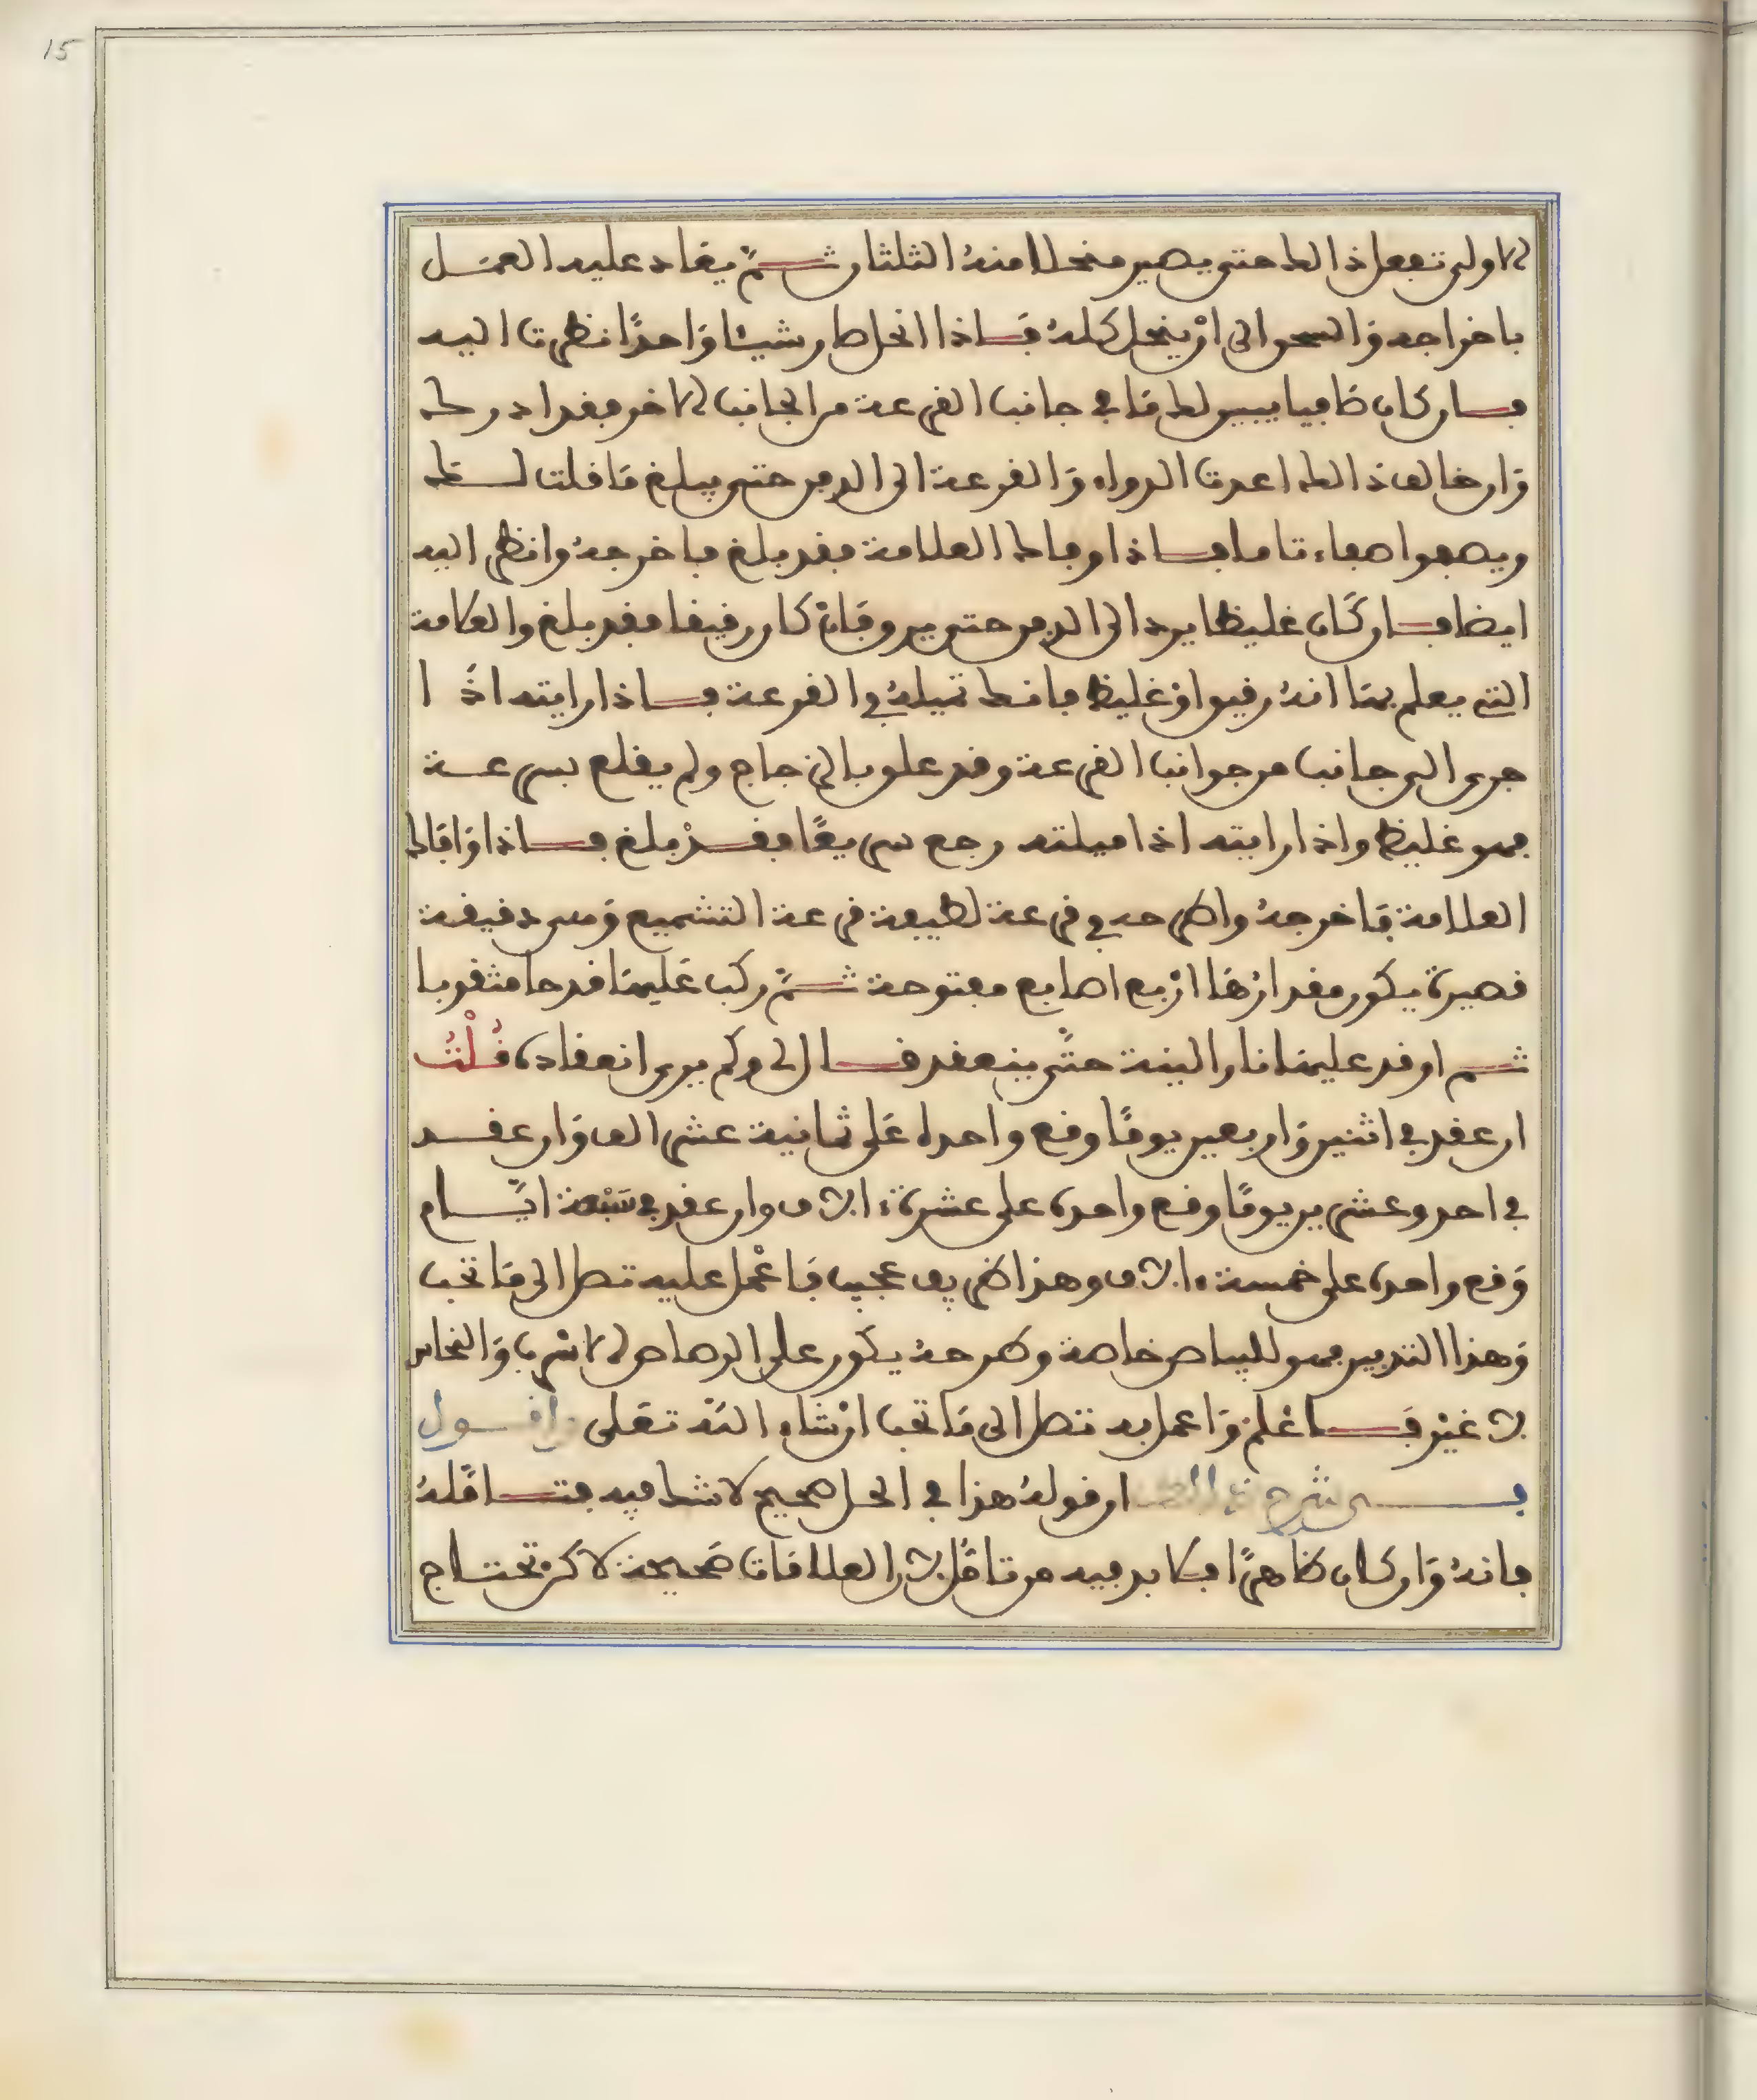 15
الاولى تفعل ذالك حتى يصير منحلا منهُ الثلثان ثـــمّ يعَاد عليه العمَـل
باخراجه وَالسحق الى انْ ينحل كلهُ فَــاذا انحل صار شيئا وَاحدًا نظرت اليه
فــان كان ظافيا يبين لك مَا في جانب القرعة من الجانب الاخر فقد ادرك
وَان خالف ذالك اعدت الدواء وَالقرعة الى الدفن حتى يبلغ مَا قلت لــك
ويصفوا صفاء تاما فــاذا وفا لك العلامة فقد بلغ فاخرجهُ وانظر اليه
ايضا فــان كَان غليظا يرد الى الدفن حتى يرق فَانْ كان رقيقا فقد بلغ والعلامة
التي يعلم بهَا انهُ رقيق اوْ غليظ فانك تميلهُ في القرعة فــاذا رايته اذَا
جرى الى جانب من جوانب القرعة وقد علق بالزجاج ولم يقلع بسرعـة
فهو غليظ واذا رايته اذا ميلته رجع سريعًا فقــدْ بلغ فــاذا وَافَا لك
العلامة فَاخرجهُ واطرحه في قرعة لطيفة قرعة التشميع وَهي دقيقة
قصيرة يكون مقدارُهَا ارْبع اصابع مفتوحة ثـــمّ ركب عَليهَا قدحا مثقوبا
ثـــم اوقد عليهَا نارا لينة حتّى ينعقد قــال لي وكم يرى انعقاده قُـلْتُ
ان عقد في اثنين وَاربعين يومًا وقع واحده عَلى ثمانية عشر الف وَان عقـد
في احد وعشرين يومًا وقع واحده على عشرة ءالاف وان عقد في سَبْعة ايّــام
وَقع واحده على خمسة ءالاف وهذا طريق عجيب فَاعْمل عليه تصل الى مَا تحب
وَهذا التدبير فهو للبياض خاصة وطرحهُ يكون على الرصاص الاسْرب وَالنحاس
لا غيْر فَــاعْلمْ وَاعمل به تصل الى مَا تحب انْ شاء اللهُ تعَلى واقــول
فــي شرح ذالك ان قولهُ هذا في الحل صحيح لا شك فيه فتــامّلهُ
فانهُ وَان كان ظاهرًا فلا بد فيه من تامّل لان العلامَات صَحيحة لاكن تحتــاج